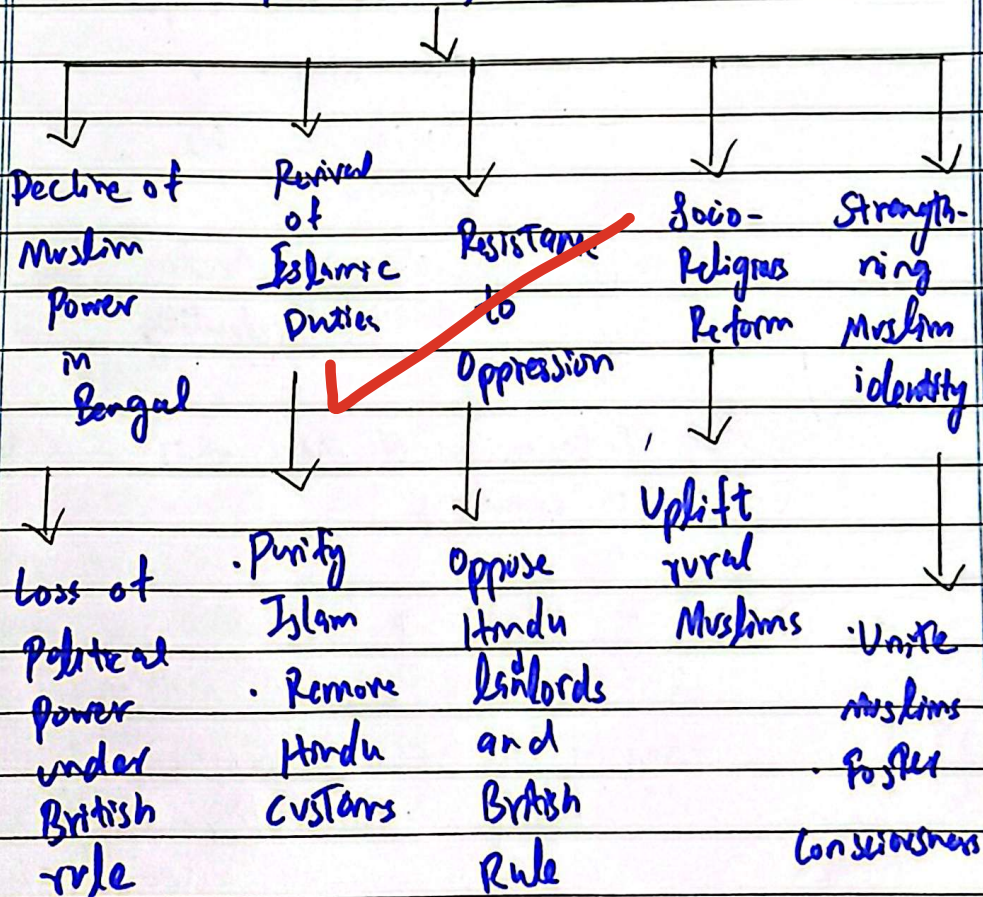 Decline of
Muslim
Power
in
Bengal
Revival
of
Islamic
Duties
Resistance
to
Oppression
Socio-
Religious
Reform
Strength-
ning
Muslim
identity
Loss of
Political
power
under
British
rule
. Purify
Islam
. Remove
Hindu
Customs
Oppose
Hindu
landlords
and
British
Rule
Uplift
rural
Muslims
. Unite
Muslims
. Foster
Consciousness